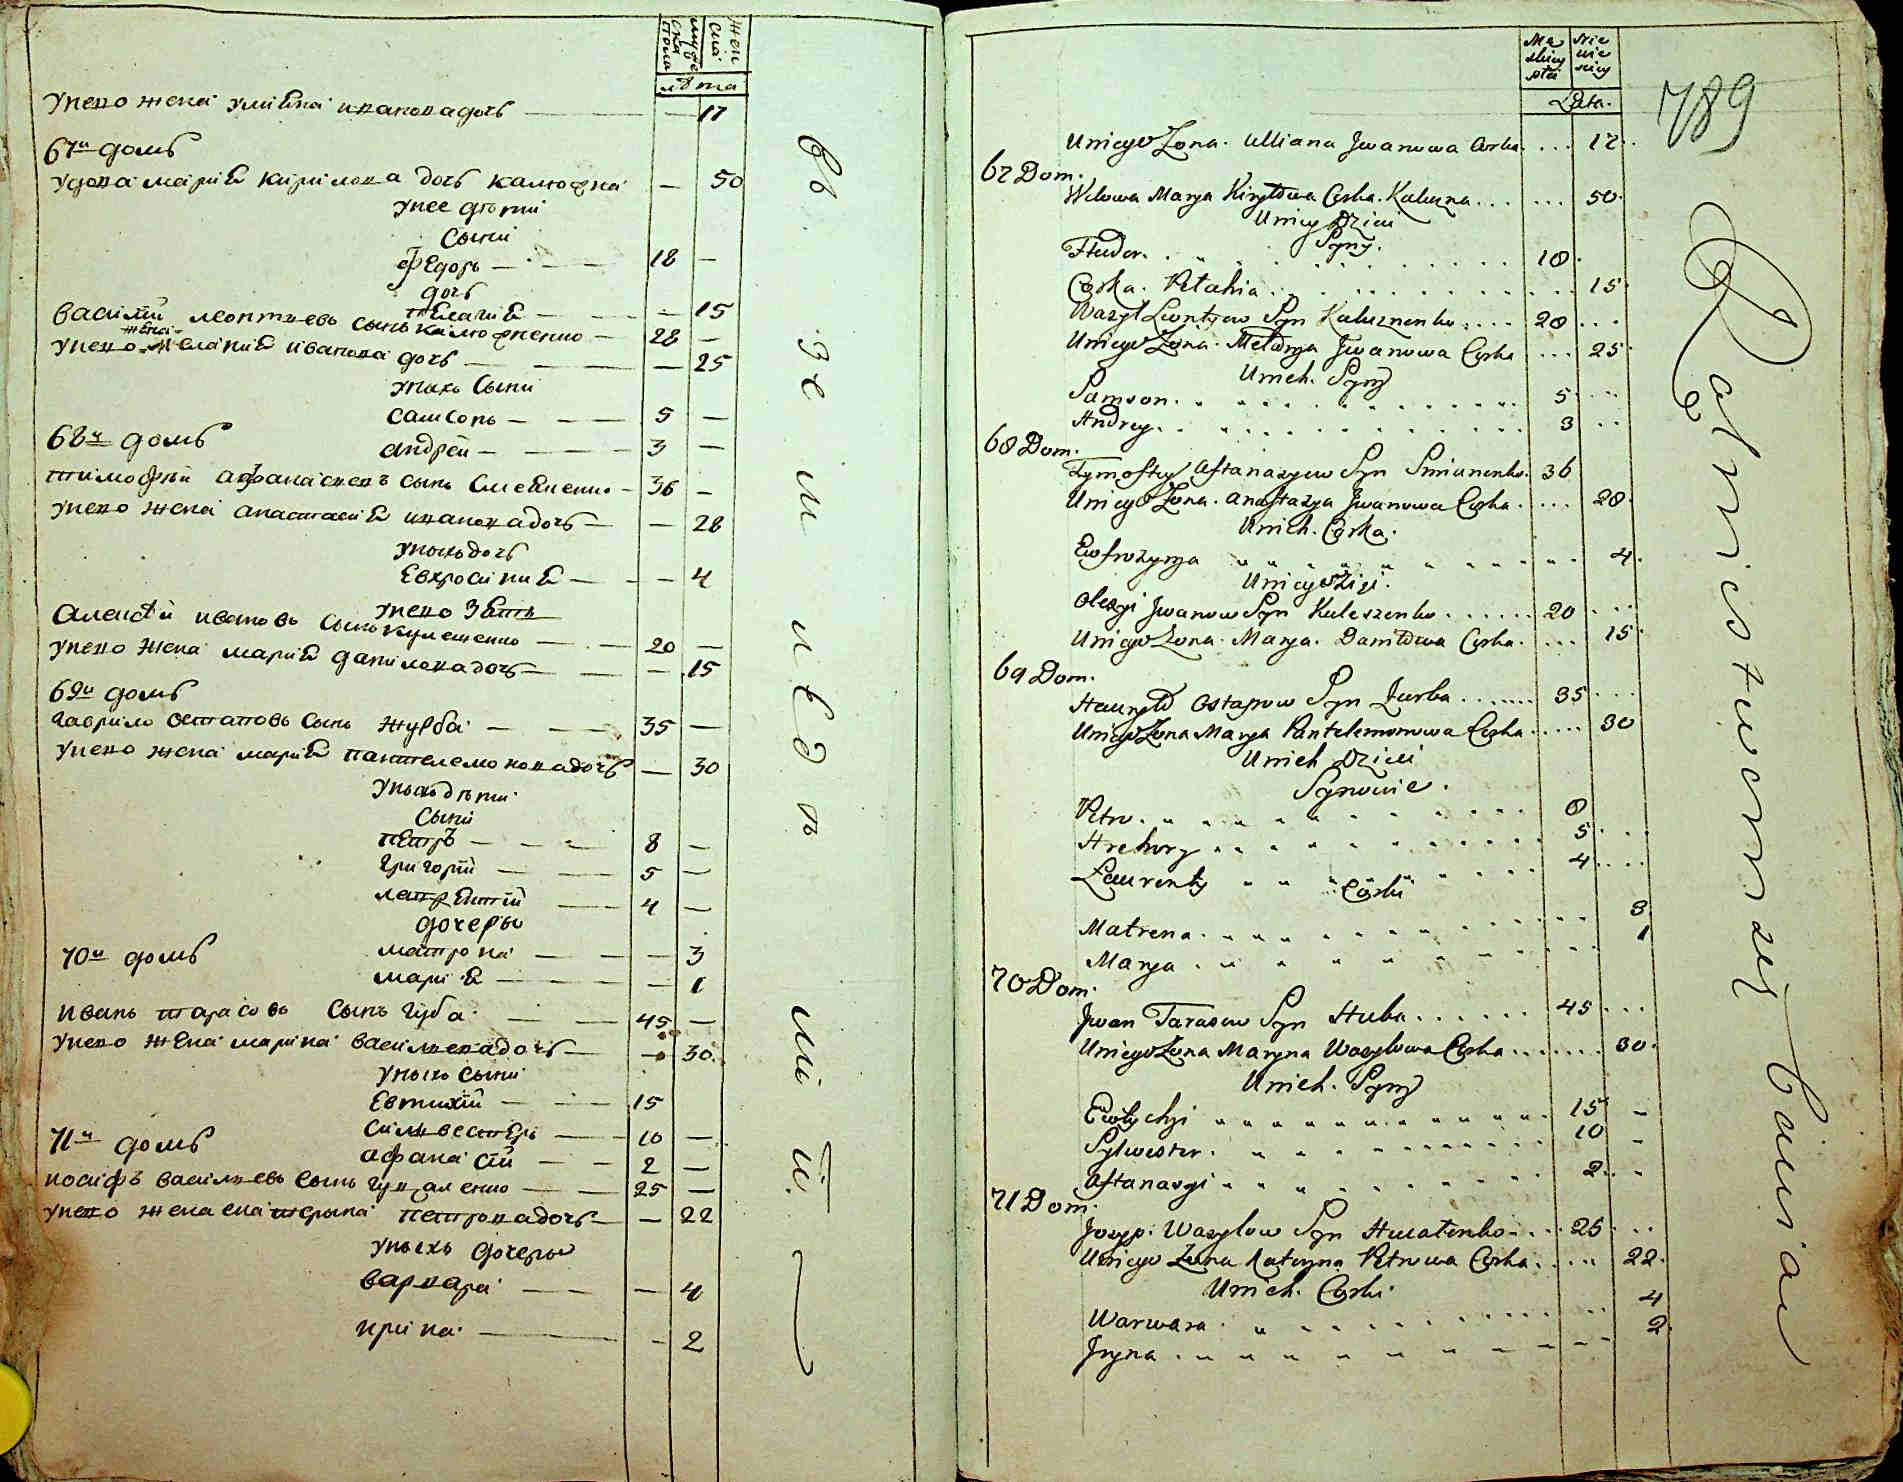 мужеска пола
женска
лѣта
унего жена улияна иванова дочь — — 17
67й домъ
удова мария кирилова дочь калюжна — 50
унее дѣти
сыни
федоръ — 18 —
дочь
пелагия — — 15
василий леонтиевъ сынъ калюжненко — 28 —
унего жена мелания иванова дочь — — 25
унихъ сыни
самсонъ — 5 —
андрей — 3 —
68й домъ
тимофей афанасиевъ сынъ смеяненко — 36 —
унего жена анастасия иванова дочь — — 28
унихъ дочь
евхросиния — — 4
унего зять
алексѣй ивановъ сынъ кулешенко — 20 —
унего жена мария данилова дочь — — 15
69й домъ
гаврило остаповъ сынъ журба — 35 —
унего жена мария пантелемонова дочь — 30
унихъ дѣти
сыни
петръ — 8 —
григорий — 5 —
лаврентий — 4 —
дочеры
матрона — — 3
мария — — 1
70й домъ
иванъ тарасовъ сынъ губа — 45 —
унего жена марина василиева дочь — — 30
унихъ сыни
евтихий — 15
силвестеръ — 10 —
афанасий — 2 —
71й домъ
иосифъ василиевъ сынъ — 25 —
унего жена екатерина петрова дочь — — 22
унихъ дочеры
варвара — — 4
ирина — — 2
въ земли
789
Męskiey płci
Żenskiey
Lata.
Uniego Żona. Ulliana Jwanowa Corka. ... 17.
67 Dom.
Wdowa Marya Kiryłowa Corka. Kaluzna ... ... 50.
Uniey Dzieci
Syny.
Fteudor. 18.
Corka. Pelahia. 15.
Wazyl Leontyew Syn Kaluznenko. ... 28 ...
Uniego Żona. Mełanya Jwanowa Corka ... 25.
Unich. Syny
Samson. 5 ...
Andrey. 3 ..
68 Dom.
Tymoftey Aftanazyew Syn Smianenko. 36
Uniego Żona. Anastazya Jwanowa Corka. ... 28.
Unich. Corka.
Ewfrozyna 4.
Uniego Zięć.
Olexyi Jwanow Syn Kuleszenko. 20 ...
Uniego Żona. Marya. Daniłowa Corka. ... 15.
69 Dom.
Hauryło Ostapow Syn Żurba 35 ...
Uniego Żona Marya Pantelemonowa Corka ... 30
Unich Dzieci
Synowie.
Petro. 8
Hrehory 5 ...
Laurenty 4 ...
Corki
Matrena. 3
Marya. 1
70 Dom.
Jwan Tarasow Syn Huba. 45 ...
Uniego Żona Maryna Wasylowa Corka. 30.
Unich. Syny
Ewtychyi 15 –
Sylwester. 10 –
Aftanasyi 2. –
71 Dom.
Jozyp. Wasylow Syn Hualenko. 25 ...
Uniego Żona Kateryna Petrowa Corka. 22.
Unich. Corki.
Warwara. 4
Jryna. 2.